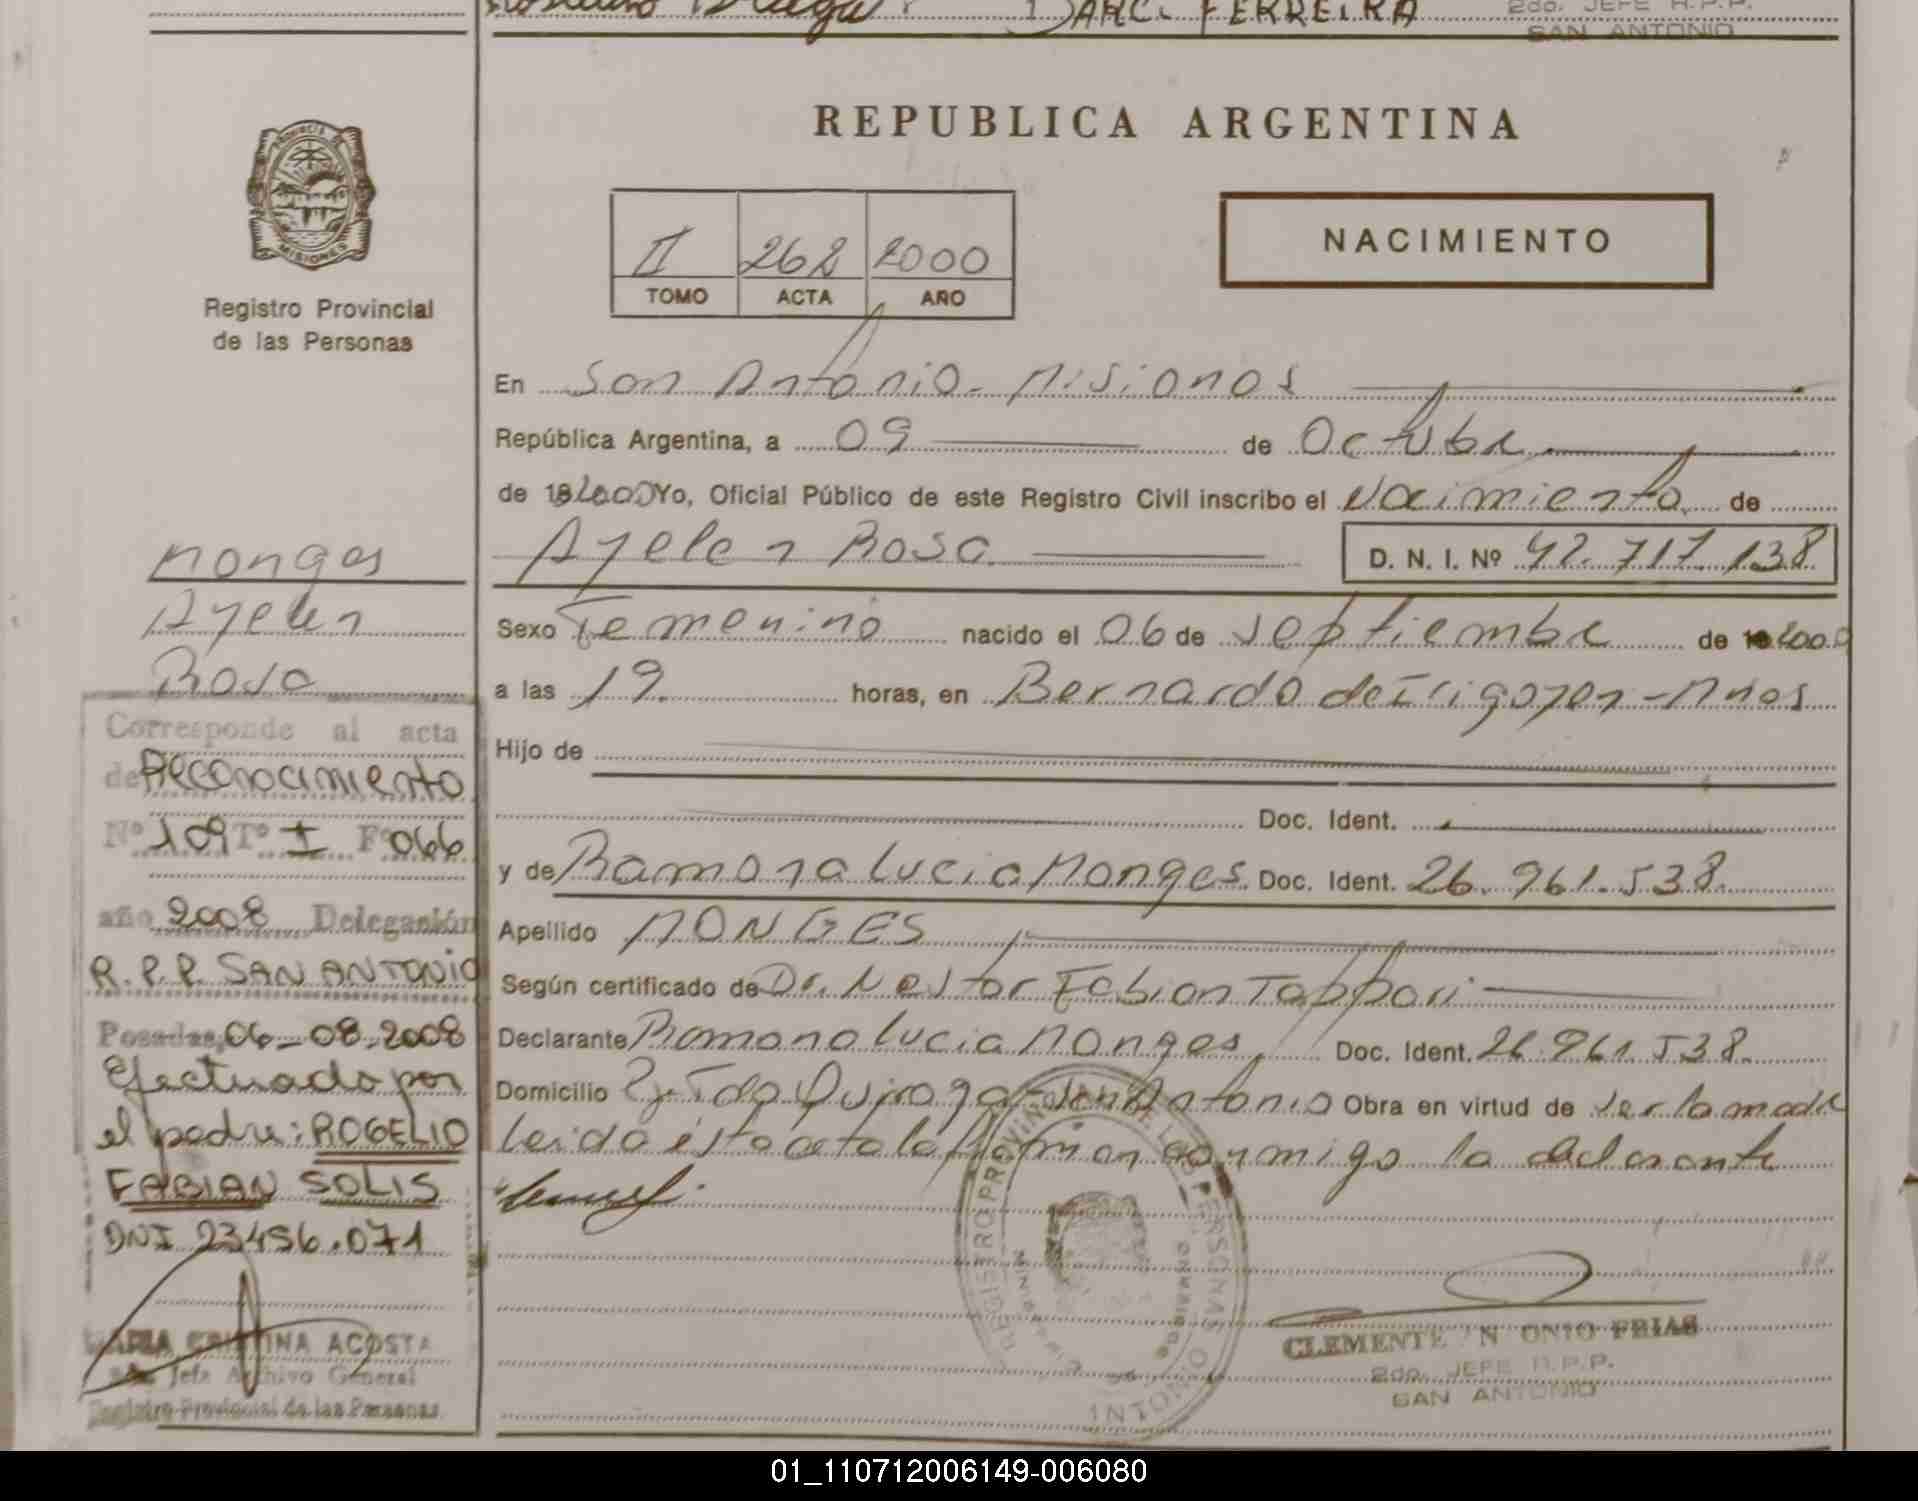 DARCI FERREIRA
2do. JEFE R.P.P.
SAN ANTONIO
REPUBLICA ARGENTINA
PROVINCIA DE
MISIONES
Registro Provincial
de las Personas
II 262 2000
TOMO ACTA AÑO
NACIMIENTO
En San Antonio - Misiones
República Argentina, a 09 de Octubre
de 2000 Yo, Oficial Público de este Registro Civil inscribo el Nacimiento de
Ayelen Rosa D. N. I. Nº 42.717.138
Sexo Femenino nacido el 06 de Septiembre de 2000
a las 19. horas, en Bernardo de Irigoyen - Mnes
Hijo de
Doc. Ident.
y de Ramona Lucia Monges. Doc. Ident. 26.961.538.
Apellido MONGES
Según certificado de Dr. Nestor Fabian Tappari
Declarante Ramona Lucia Monges, Doc. Ident. 26.961.538.
Domicilio Quiroga - San Antonio Obra en virtud de ser la madre
Leida ésta acta la firman conmigo la declarante
CLEMENTE ANTONIO FRIAS
2do. JEFE R.P.P.
SAN ANTONIO
Monges
Ayelen
Rosa
Corresponde al acta
de Reconocimiento
Nº 109 Tº I Fº 066
año 2008 Delegación
R.P.P. SAN ANTONIO
Posadas, 06-08-2008
Efectuado por
el padre: ROGELIO
FABIAN SOLIS
DNI 23456.071
MARIA CRISTINA ACOSTA
Jefa Archivo General
Registro Provincial de las Personas
01_110712006149-006080